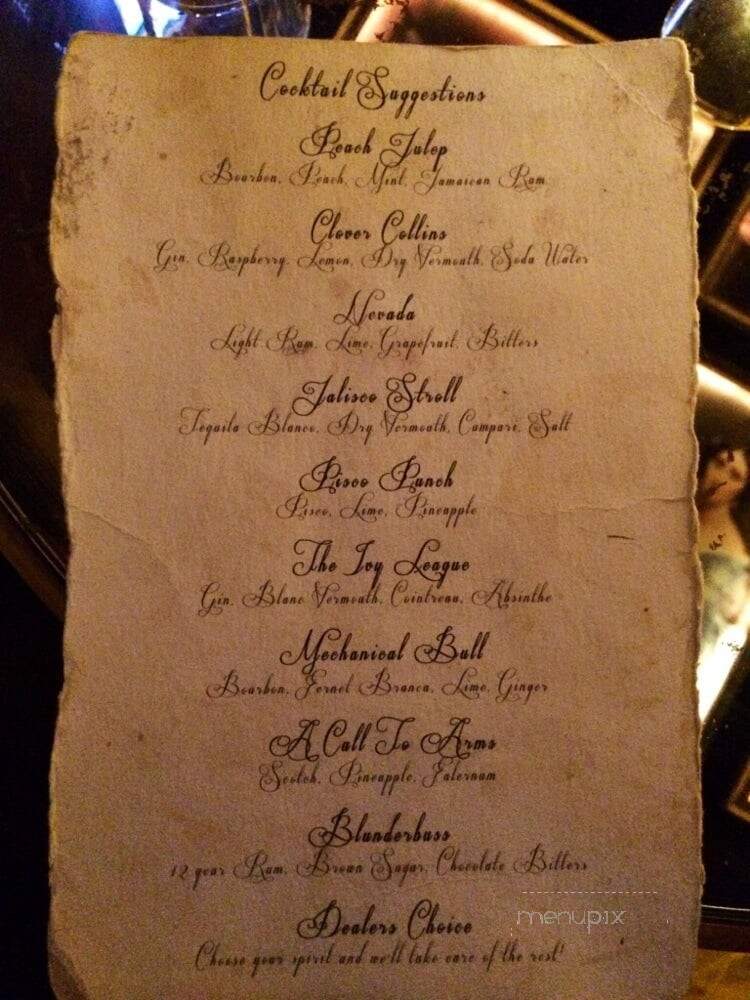 Cocktail Suggestions
Peach Julep
Bourbon, Peach, Mint, Jamaican Rum
Clover Collins
Gin, Raspberry, Lemon, Dry Vermouth, Soda Water
Nevada
Light Rum, Lime, Grapefruit, Bitters
Jalisco Stroll
Tequila Blanco, Dry Vermouth, Campari, Salt
Pisco Punch
Pisco, Lime, Pineapple
The Ivy League
Gin, Blanc Vermouth, Cointreau, Absinthe
Mechanical Bull
Bourbon, Fernet Branca, Lime, Ginger
A Call To Arms
Scotch, Pineapple, Falernum
Blunderbuss
12 year Rum, Brown Sugar, Chocolate Bitters
Dealers Choice
Choose your spirit and we'll take care of the rest!
menupix